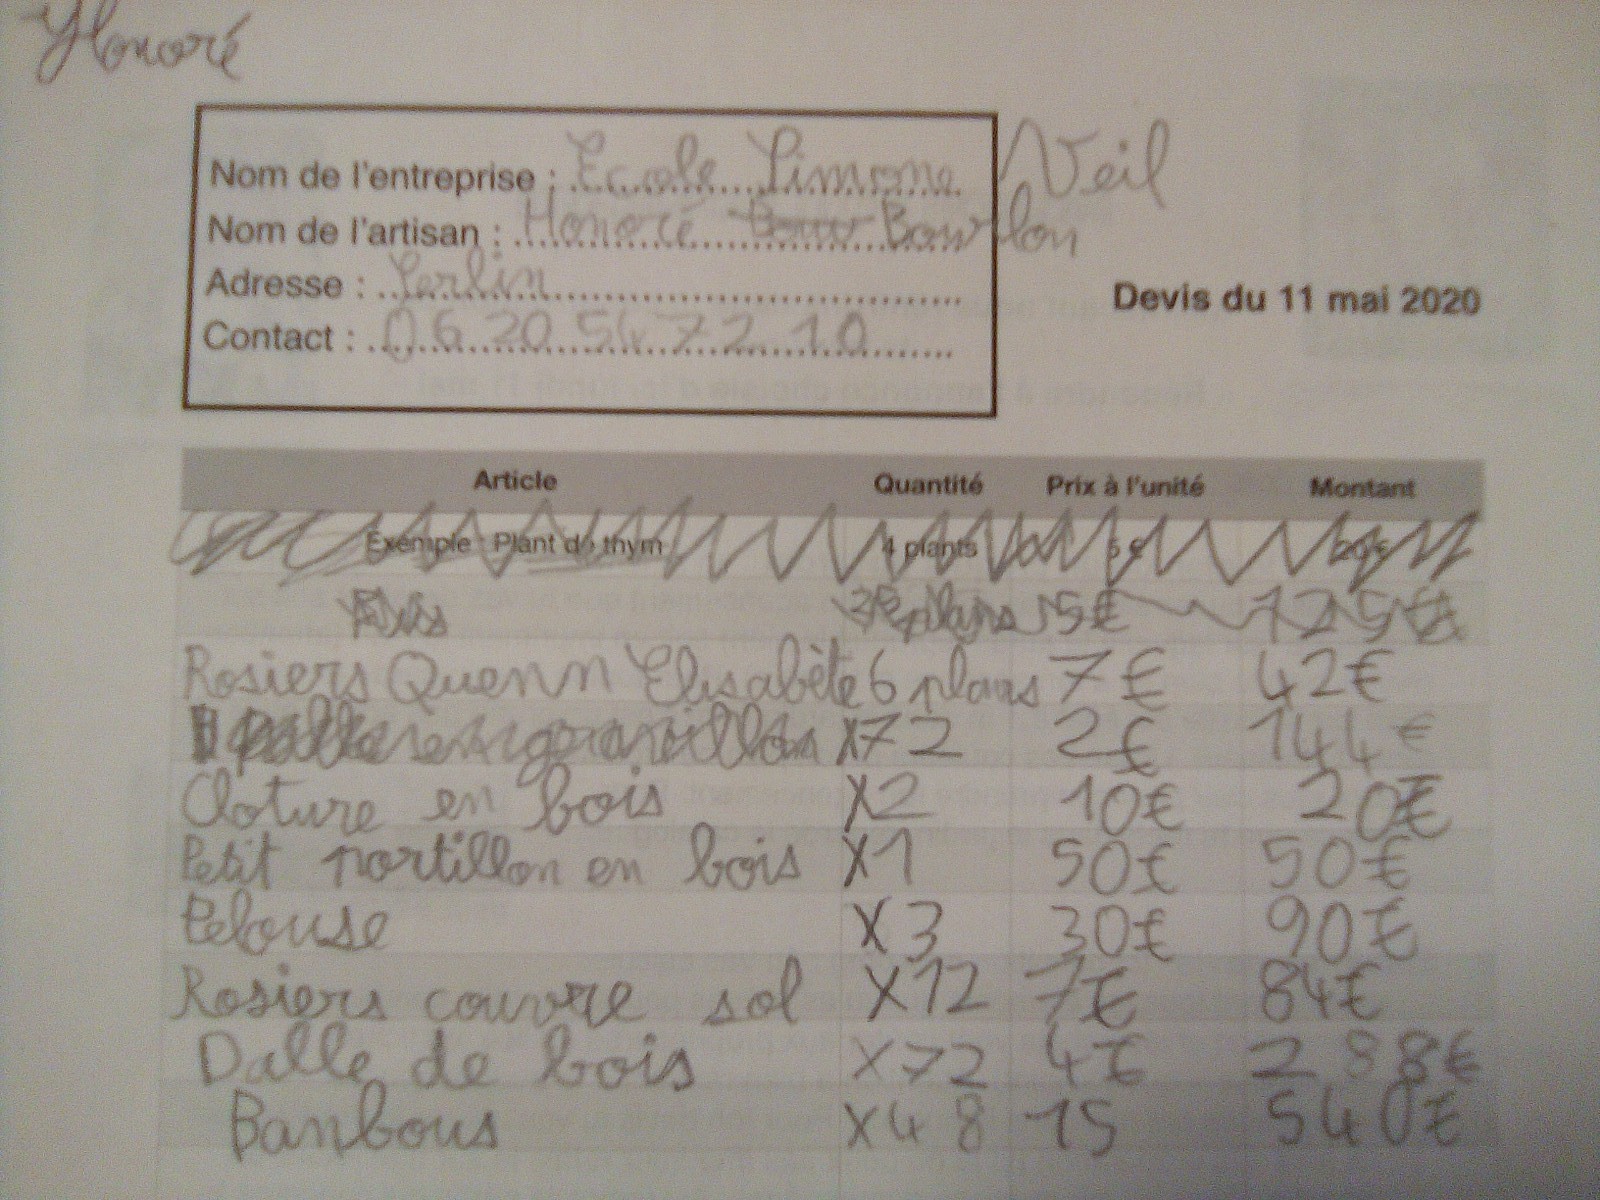 Honoré
Nom de l'entreprise : Ecole Simone Veil
Nom de l'artisan : Honoré Bouv Bouvlon
Adresse : Serlin
Contact : 06 20 54 72 10
Devis du 11 mai 2020
Article Quantité Prix à l'unité Montant
Exemple : Plant de thym 4 plants 5 € 20 €
5€ 725€
Rosiers Quenn Elisabète 6 plans 7€ 42€
Dalle en gravillon X72 2€ 144€
Cloture en bois X2 10€ 20€
Petit portillon en bois X1 50€ 50€
Pelouse X3 30€ 90€
Rosiers couvre sol X12 7€ 84€
Dalle de bois X72 4€ 288€
Banbous X48 15 540€